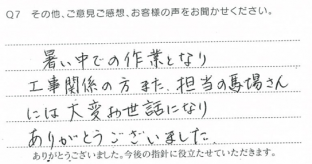 Q7 その他、ご意見ご感想、お客様の声をお聞かせください。
暑い中での作業となり
工事関係の方また、担当の馬場さん
には大変お世話になり
ありがとうございました。
ありがとうございました。今後の指針に役立たせていただきます。